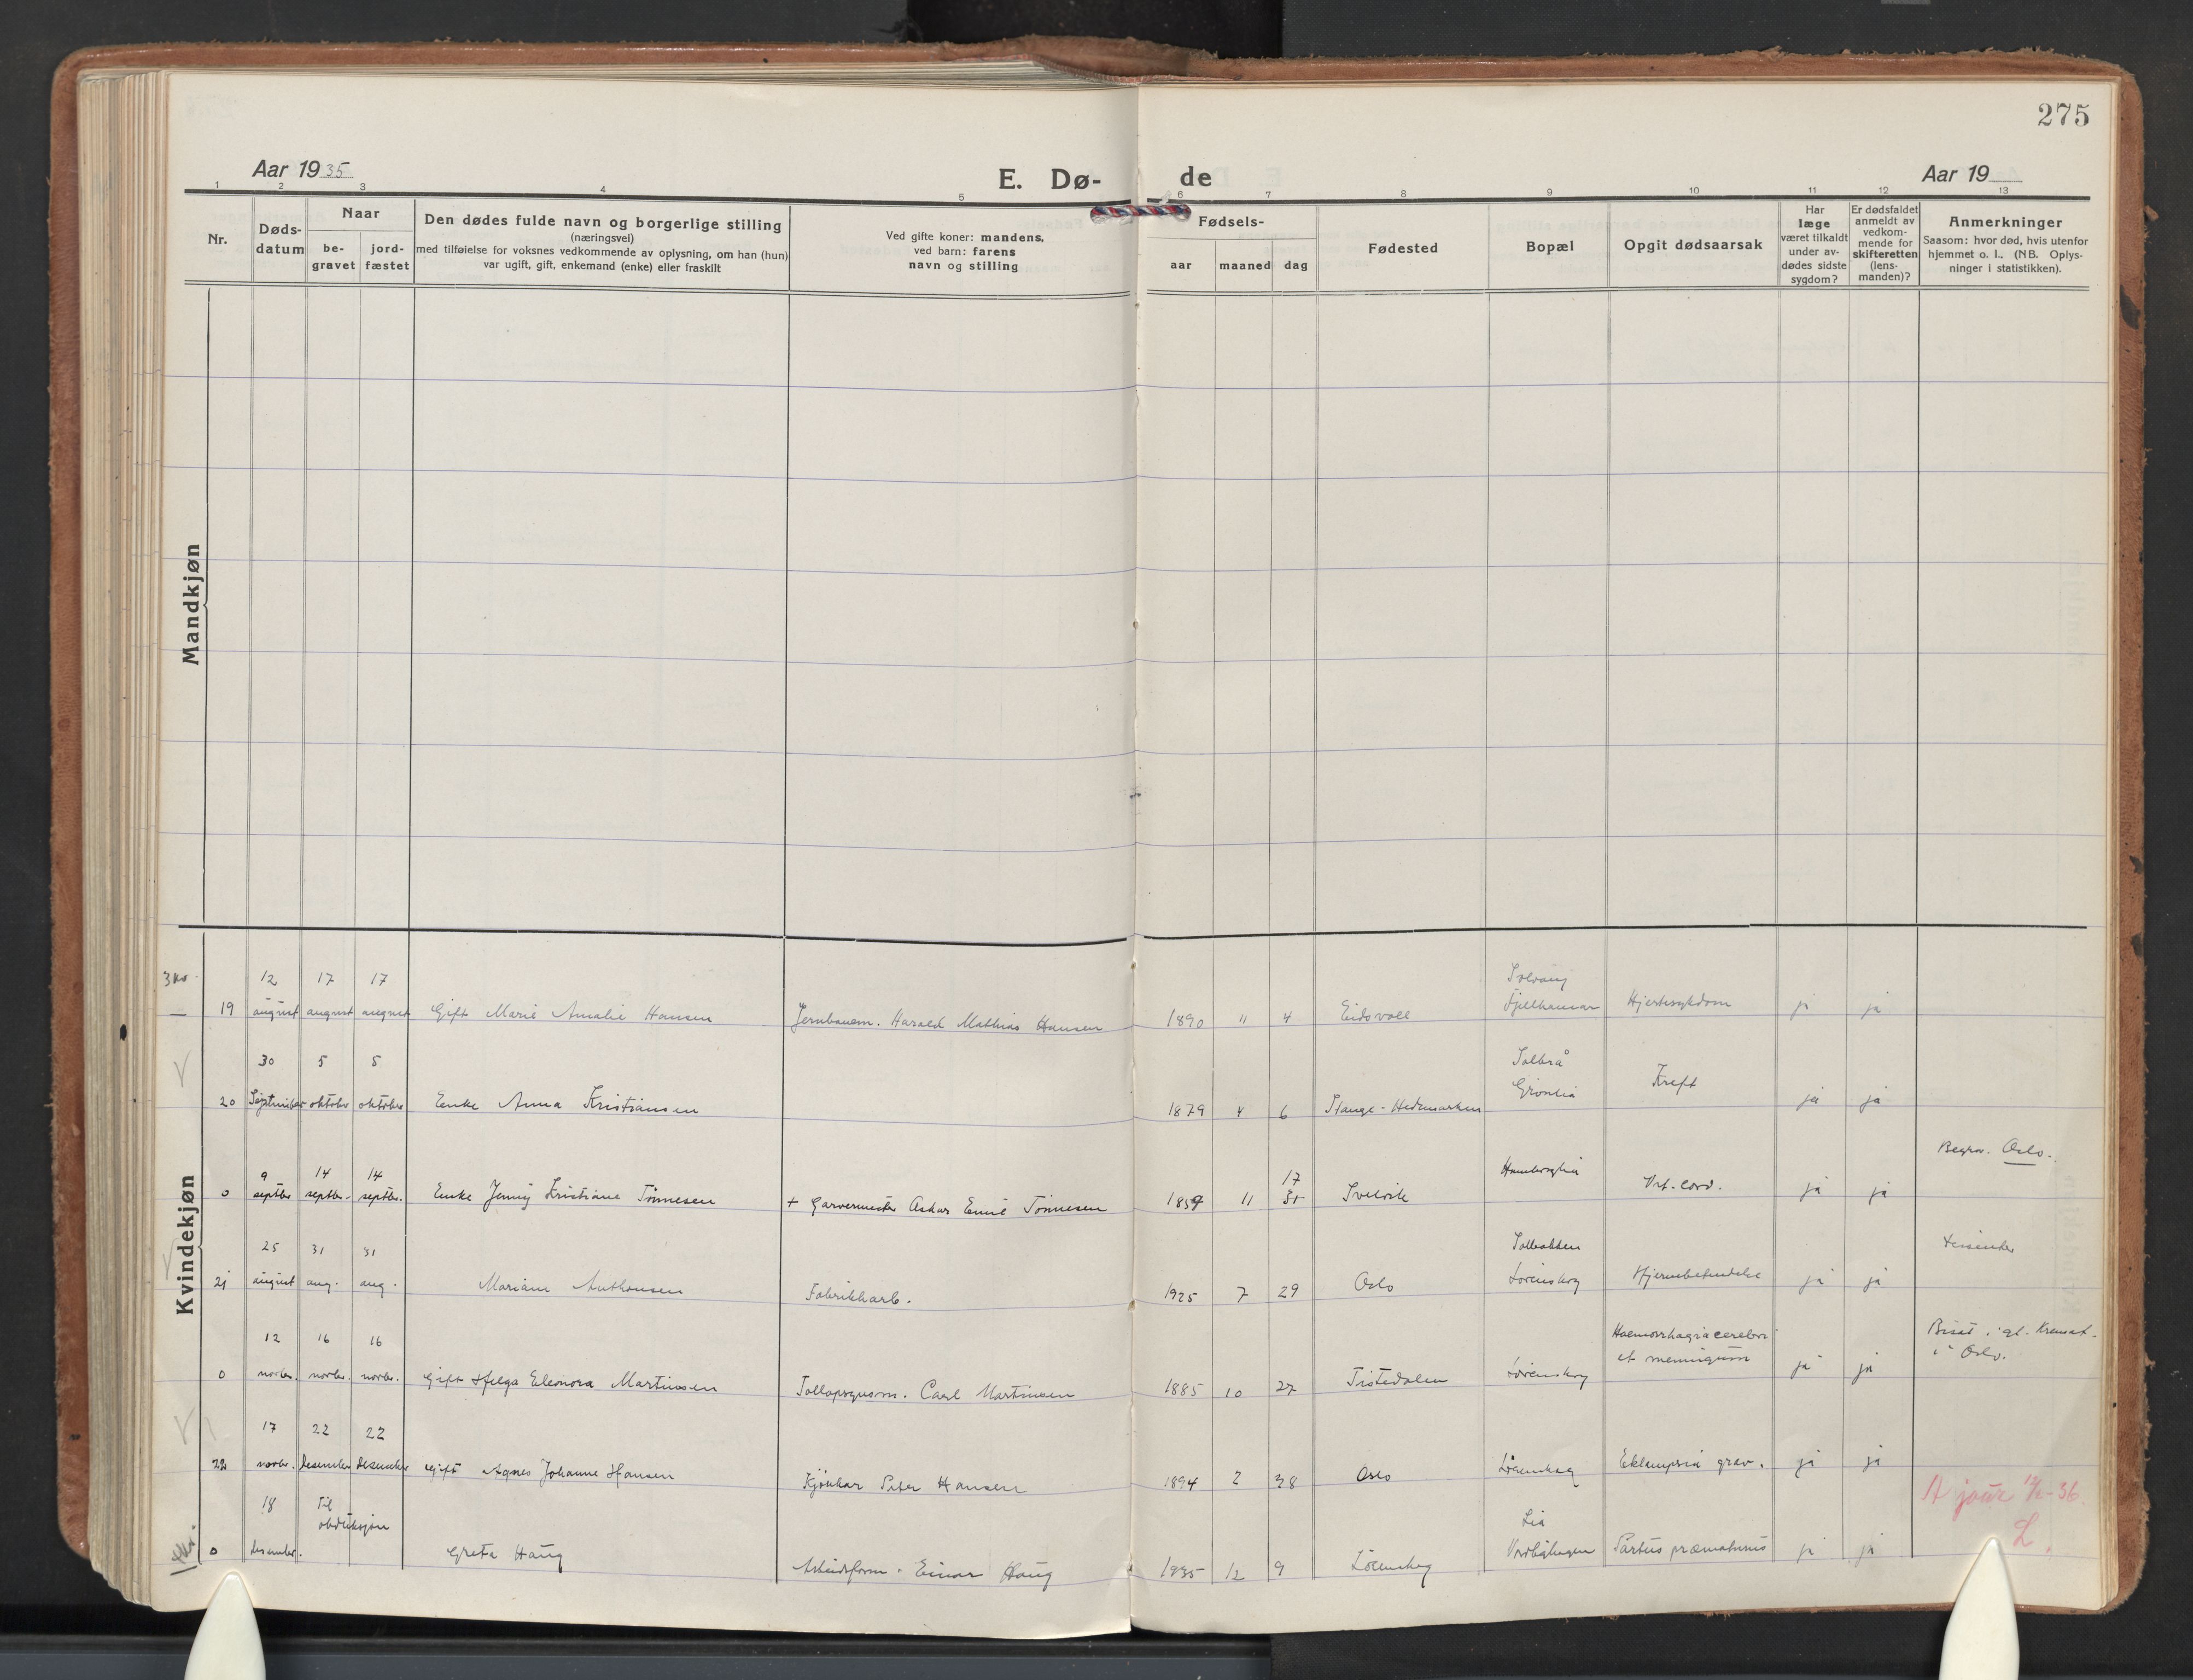 275
Aar 1935
E. Dø-
de
Aar 19
1 2 3 4 5 6 7 8 9 10 11 12 13
Nr.
Døds-
datum
Naar
be-
gravet
jord-
fæstet
Den dødes fulde navn og borgerlige stilling
(næringsvei)
med tilføielse for voksnes vedkommende av oplysning, om han (hun)
var ugift, gift, enkemand (enke) eller fraskilt
Ved gifte koner: mandens,
ved barn: farens
navn og stilling
Fødsels-
aar maaned dag
Fødested
Bopæl
Opgit dødsaarsak
Har
læge
været tilkaldt
under av-
dødes sidste
sygdom?
Er dødsfaldet
anmeldt av
vedkom-
mende for
skifteretten
(lens-
manden)?
Anmerkninger
Saasom: hvor død, hvis utenfor
hjemmet o. l.. (NB. Oplys-
ninger i statistikken).
Mandkjøn
Kvindekjøn
12 17 17
19 august august august Gift Marie Amalie Hansen Jernbanem. Harald Mathias Hansen 1890 11 4 Eidsvoll Solvang
Fjellhamar Hjertesykdom ja ja
30 5 5
20 September oktober oktober Enke Anna Kristiansen 1879 4 6 Stange - Hedemarken Solbrå
Grønlia Kreft ja ja
9 14 14
0 septbr septbr. septbr. Enke Jenny Kristiane Tønnesen + Garvermester Oskar Emil Tønnesen 1859 11 17 Svelvik ja ja Begrav. Oslo.
25 31 31
21 august aug. aug. Mariam Anthonsen Fabrikkarb. 1925 7 29 Oslo Solbakken
Lørenskog Hjernebetendelse ja ja
12 16 16
0 novbr. novbr. novbr. Gift Helga Eleonora Martinsen Tollopsynsm. Carl Martinsen 1885 10 27 Tistedalen Lørenskog Haemorrhagia cerebri
et meningum ja ja Bisat i gl. Kremat.
i Oslo.
17 22 22
22 novbr. desember desember Gift Agnes Johanne Hansen Peter Hansen 1894 2 28 Oslo Lørenskog Eklampsia grav. ja ja
18 Til
obduksjon
0 desember. Greta Haug Arbeidsform. Einar Haug 1935 12 9 Lørenskog Lia
Partus præmaturus ja ja
A jour
36
L.